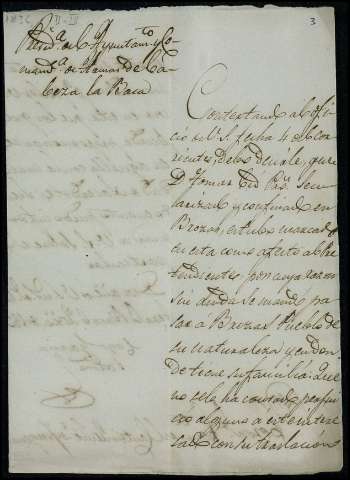 1836
II-III
3
Presid.ª del Ayuntam.to y Co
mand.ª de Armas de Ca-
beza la Baca
Contextando al ofi-
cio de V. fecha 4 del cor-
riente, debo decirle, que
D. Tomas Cid Pas. Secu-
larizado y confinado en
Brozas, estubo marcado
en esta como afecto al Pre-
tendiente, por cuya razon
sin duda se mandó pa-
sar a Brozas Pueblo de
su naturaleza y en don-
de tiene su familia. Que
no se le ha causado perjui-
cio alguno a este intere-
sado con su traslacion